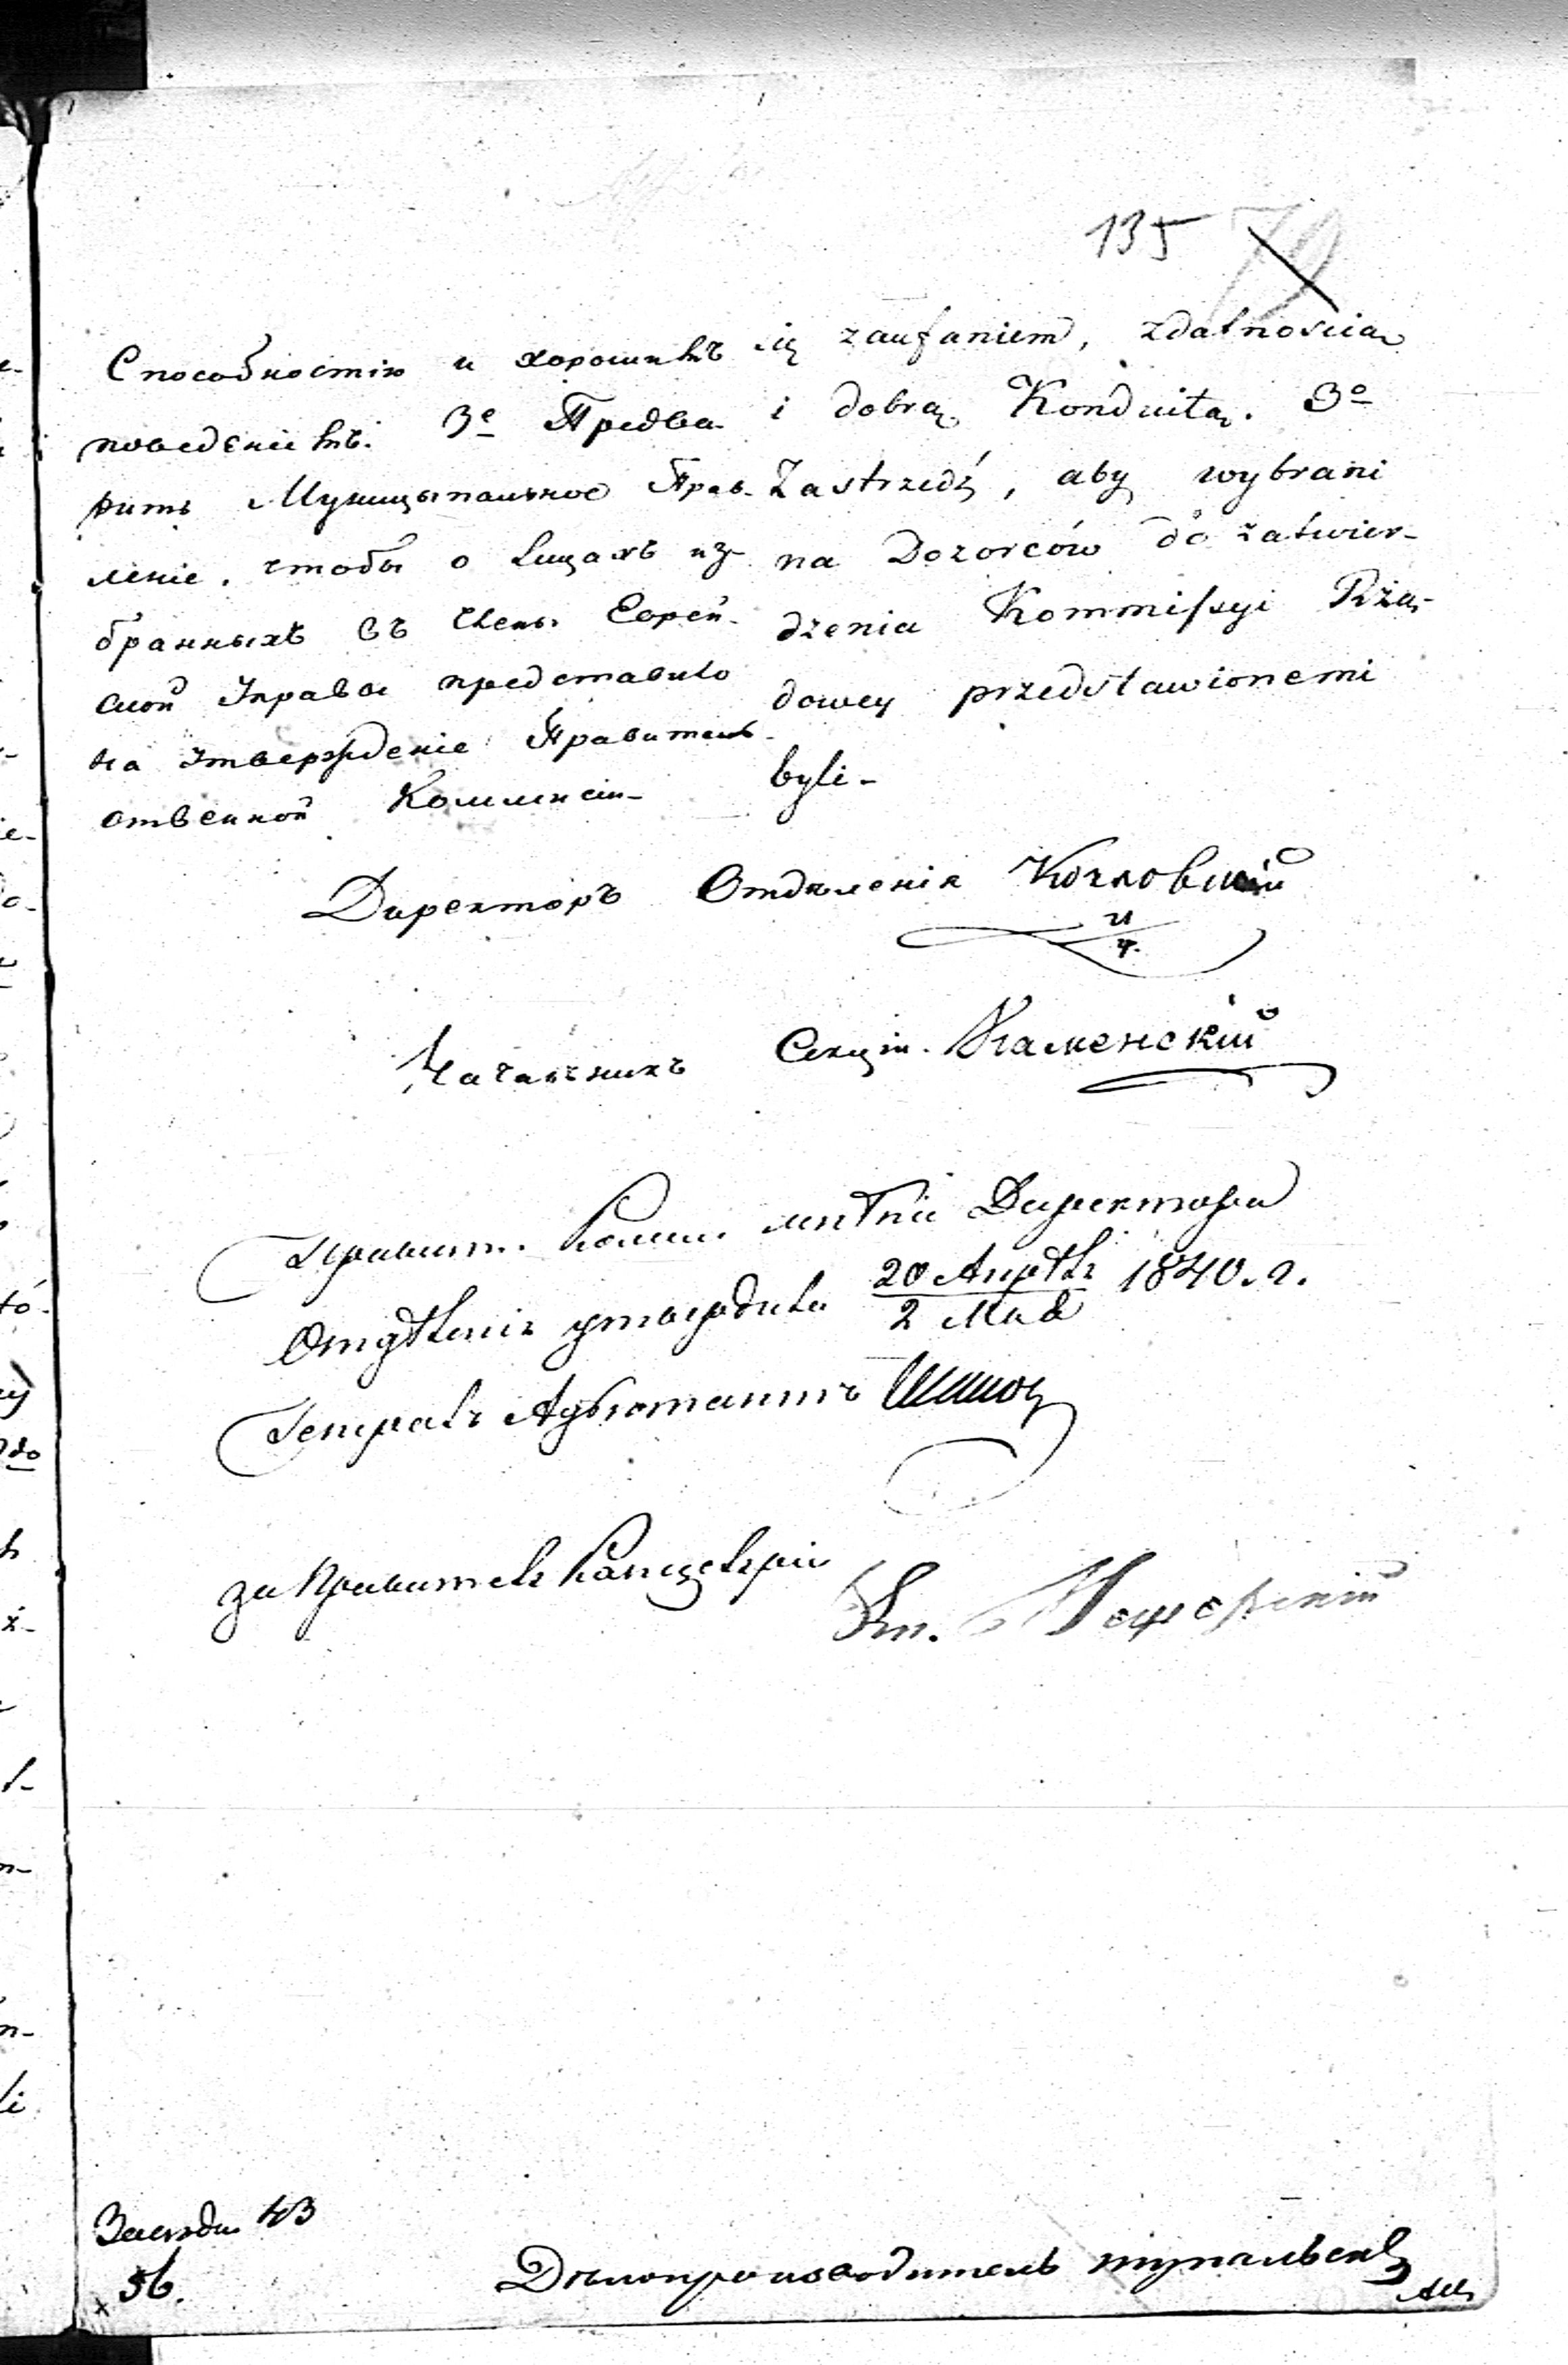 135 79
Способностію и хорошимъ
поведеніемъ. 3е Предва-
рить Муницыпальное Прав-
леніе, чтобы о лицахъ из-
бранныхъ въ члены Еврей-
ской Управы представило
на утвержденіе Правитель-
ственной Коммисіи
ią zaufaniem, zdatnościa
i dobrą Konduitą. 3o
Zastrzedz, aby wybrani
na Dozorców do zatwier-
dzenia Kommissyi Rzą-
dowey przedstawionemi
byli -
Директоръ Отдѣленія
21/4.
Начальникъ Секціи. Каменскій
Правит. Комм. мнѣніе Директора
Отдѣленія утвердила 20 Апрѣля / 2 Мая 1840. г.
Генералъ Адъютантъ Шиповъ
за Правителя Канцеляріи
Засѣда 43
56.
Дѣлопроизводитель